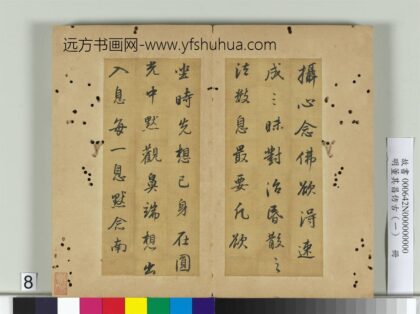 远方书画网-www.yfshuhua.com
攝心念佛欲得速
成三昧對治昏散之
法數息最要凡欲
坐時先想己身在圓
光中默觀鼻端想出
入息每一息默念南
故書000642N000000000
明董其昌仿古(一) 冊
8